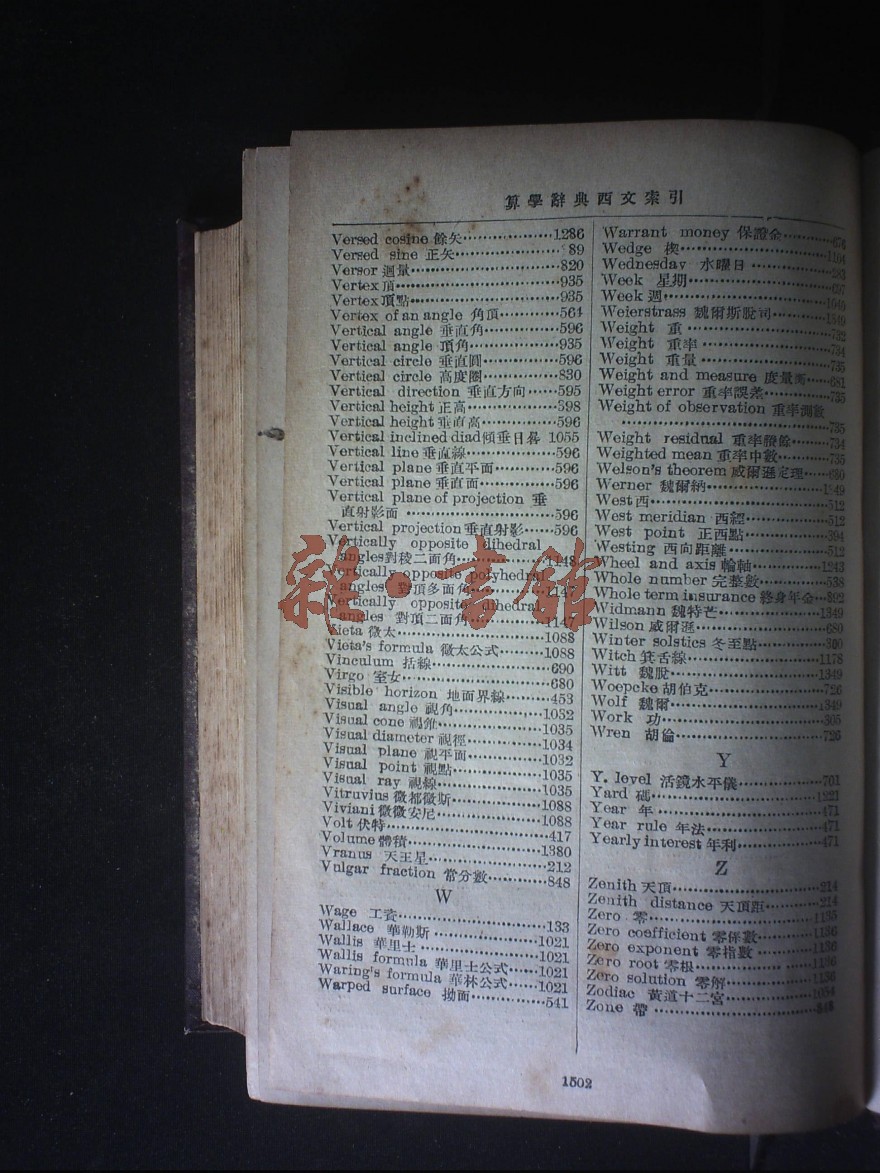 算學辭典西文索引
Versed cosine 餘矢 1286
Versed sine 正矢 89
Versor 週量 820
Vertex 頂 935
Vertex 頂點 935
Vertex of an angle 角頂 564
Vertical angle 垂直角 596
Vertical angle 頂角 935
Vertical circle 垂直圓 596
Vertical circle 高度圈 830
Vertical direction 垂直方向 595
Vertical height 正高 398
Vertical height 垂直高 596
Vertical inclined diad 傾垂日晷 1055
Vertical line 垂直線 596
Vertical plane 垂直平面 596
Vertical plane 垂直面 596
Vertical plane of projection 垂
直射影面 596
Vertical projection 垂直射影 596
Vertically opposite dihedral
angles 對稜二面角 1148
Vertically opposite polyhedral
angles 對頂多面角 1147
Vertically opposite dihedral
angles 對頂二面角 1147
Vieta 微太 1088
Vieta's formula 微太公式 1088
Vinculum 括線 690
Virgo 室女 680
Visible horizon 地面界線 453
Visual angle 視角 1032
Visual cone 視錐 1035
Visual diameter 視徑 1034
Visual plane 視平面 1032
Visual point 視點 1035
Visual ray 視線 1035
Vitruvius 微都微斯 1088
Viviani 微微安尼 1088
Volt 伏特 417
Volume 體積 1380
Vranus 天王星 212
Vulgar fraction 常分數 848
W
Wage 工資 133
Wallace 華勒斯 1021
Wallis 華里士 1021
Wallis formula 華里士公式 1021
Waring's formula 華林公式 1021
Warped surface 拗面 541
Warrant money 保證金 676
Wedge 楔 1104
Wednesday 水曜日 283
Week 星期 697
Week 週 1040
Weierstrass 魏爾斯脫司 1349
Weight 重 732
Weight 重率 734
Weight 重量 735
Weight and measure 度量衡 681
Weight error 重率誤差 735
Weight of observation 重率測數
735
Weight residual 重率賸餘 734
Weighted mean 重率中數 735
Welson's theorem 威爾遜定理 680
Werner 魏爾納 1349
West 西 512
West meridian 西經 512
West point 正西點 394
Westing 西向距離 512
Wheel and axis 輪軸 1243
Whole number 完整數 538
Whole term insurance 終身年金 892
Widmann 魏特芒 1349
Wilson 威爾遜 680
Winter solstics 冬至點 300
Witch 箕舌線 1178
Witt 魏脫 1349
Woepcke 胡伯克 726
Wolf 魏爾 1349
Work 功 305
Wren 胡倫 726
Y
Y. level 活鏡水平儀 701
Yard 碼 1221
Year 年 471
Year rule 年法 471
Yearly interest 年利 471
Z
Zenith 天頂 214
Zenith distance 天頂距 214
Zero 零 1135
Zero coefficient 零係數 1136
Zero exponent 零指數 1136
Zero root 零根 1136
Zero solution 零解 1136
Zodiac 黃道十二宮 1054
Zone 帶 848
1502
雜·書館